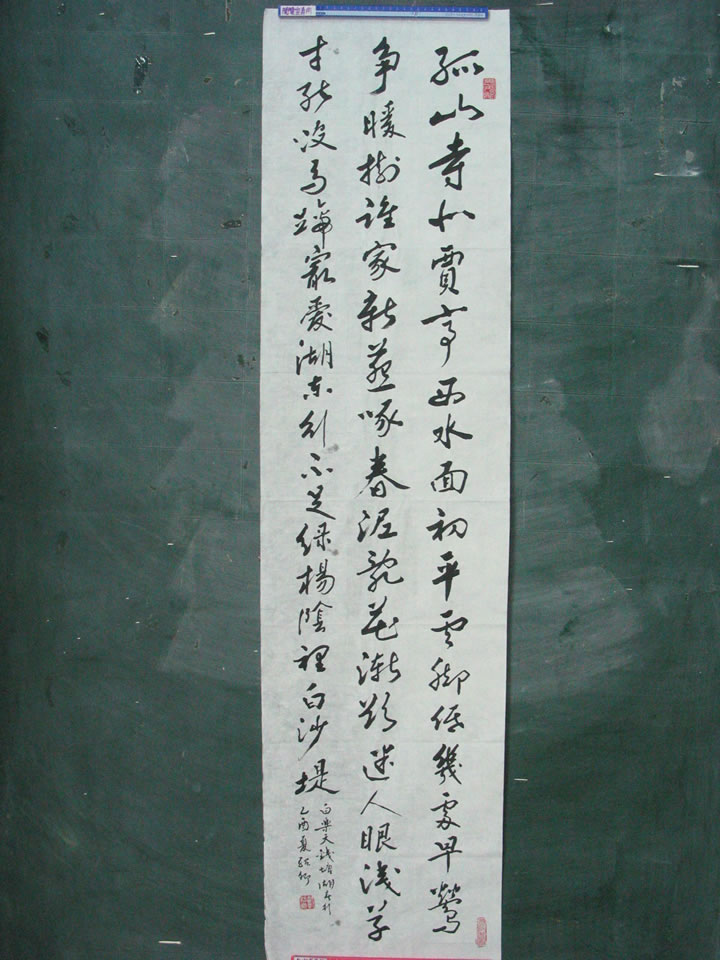 孤山寺北賈亭西水面初平雲脚低幾處早鶯
争暖樹誰家新燕啄春泥亂花漸欲迷人眼淺草
才能没馬蹄最愛湖東行不足綠楊陰裡白沙堤
白樂天錢塘湖春行
乙酉夏